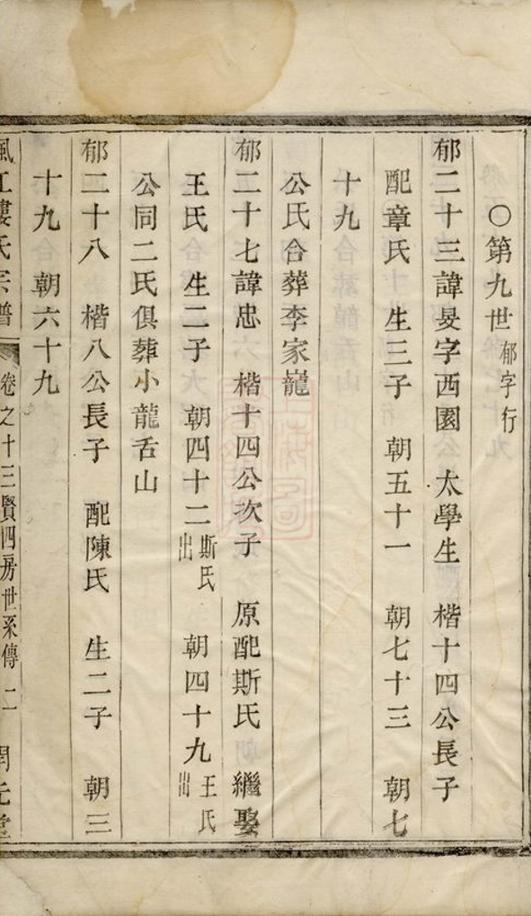 ○第九世郁字行
郁二十三諱旻字西園 太學生 楷十四公長子
配章氏 生三子 朝五十一 朝七十三 朝七
十九
公氏合葬李家巃
郁二十七諱忠 楷十四公次子 原配斯氏 繼娶
王氏 生二子 朝四十二斯氏出 朝四十九王氏出
公同二氏俱葬小龍舌山
郁二十八 楷八公長子 配陳氏 生二子 朝三
十九 朝六十九
樓氏宗譜 卷之十三賢四房世系傳 二